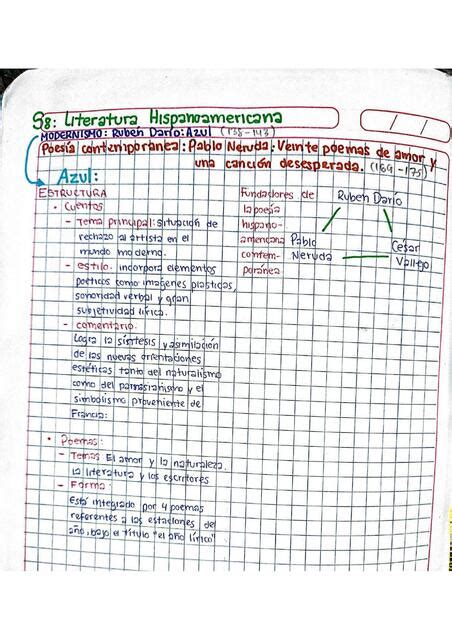 S8: Literatura Hispanoamericana
MODERNISMO: Ruben Darío: Azul (138-143)
Poesía contemporánea: Pablo Neruda: Veinte poemas de amor y
una canción desesperada. (169-175)
Azul:
ESTRUCTURA
• Cuentos
- Tema principal: Situación de
rechazo al artista en el
mundo moderno.
- estilo: incorpora elementos
poéticos como imágenes plásticas,
sonoridad verbal y gran
subjetividad lírica.
- comentario:
Logra la síntesis y asimilación
de las nuevas orientaciones
estéticas tanto del naturalismo
como del parnasianismo y el
simbolismo proveniente de
Francia.
• Poemas:
- Temas El amor y la naturaleza.
La literatura y los escritores
- Forma:
Está integrado por 4 poemas
referentes a las estaciones del
año, bajo el título "el año lírico"
Fundadores de
la poesía
hispano-
americana
contem-
poránea
Ruben Darío
Pablo
Neruda
Cesar
Vallejo